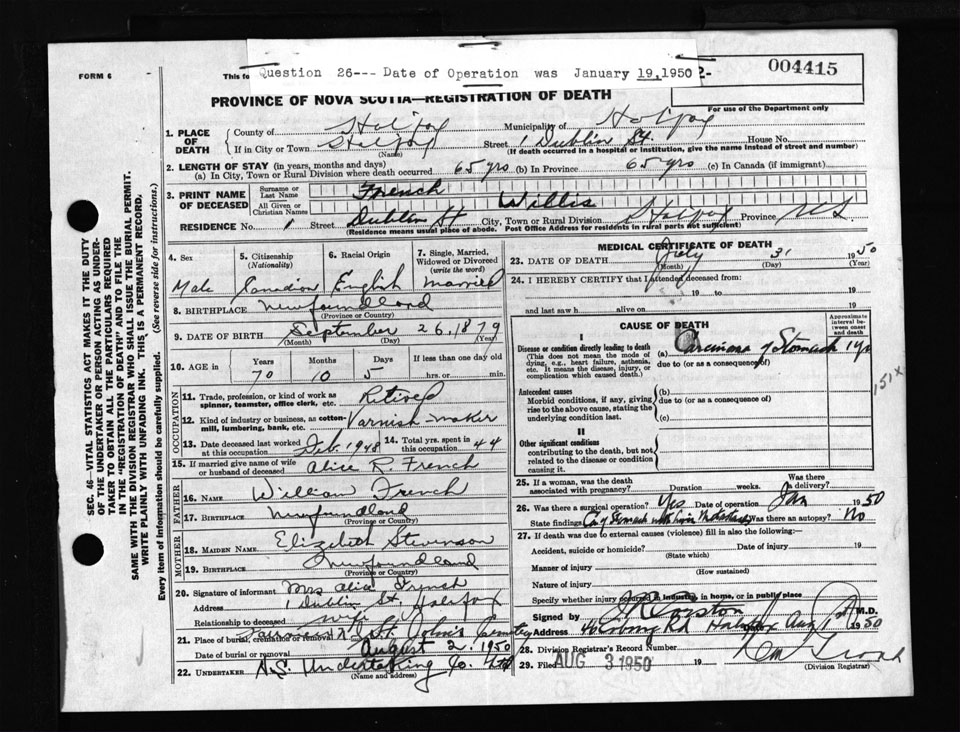 Question 26--- Date of Operation was January 19,1950
FORM 6
This fo
2-
004415
PROVINCE OF NOVA SCOTIA—REGISTRATION OF DEATH
For use of the Department only
1. PLACE OF DEATH
County of Halifax Municipality of Halifax
If in City or Town Halifax Street 1 Dublin St. House No.
(Name) (If death occurred in a hospital or institution, give the name instead of street and number)
2. LENGTH OF STAY (in years, months and days)
(a) In City, Town or Rural Division where death occurred 65 yrs (b) In Province 65 yrs (c) In Canada (if immigrant)
3. PRINT NAME OF DECEASED
Surname or Last Name French
All Given or Christian Names Willis
RESIDENCE No. 1 Street Dublin St City, Town or Rural Division Halifax Province N.S.
(Residence means usual place of abode. Post Office Address for residents in rural parts not sufficient)
4. Sex
Male
5. Citizenship (Nationality)
Canadian
6. Racial Origin
English
7. Single, Married, Widowed or Divorced (write the word)
Married
8. BIRTHPLACE Newfoundland
(Province or Country)
9. DATE OF BIRTH September 26, 1879
(Month) (Day) (Year)
10. AGE in
Years Months Days If less than one day old
70 10 5 hrs. or min.
OCCUPATION
11. Trade, profession, or kind of work as spinner, teamster, office clerk, etc. Retired
12. Kind of industry or business, as cotton-mill, lumbering, bank, etc. Varnish-maker
13. Date deceased last worked at this occupation Feb. 1948
14. Total yrs. spent in this occupation 44
15. If married give name of wife or husband of deceased Alice R. French
FATHER
16. NAME William French
17. BIRTHPLACE Newfoundland
(Province or Country)
MOTHER
18. MAIDEN NAME Elizabeth Stevenson
19. BIRTHPLACE Newfoundland
(Province or Country)
20. Signature of informant Mrs Alice French
Address 1 Dublin St. Halifax
Relationship to deceased wife
21. Place of burial, cremation or removal St. John's Cemetery
Date of burial or removal August 2, 1950
22. UNDERTAKER N.S. Undertaking Co. Ltd
(Name and address)
MEDICAL CERTIFICATE OF DEATH
23. DATE OF DEATH July 31 1950
(Month) (Day) (Year)
24. I HEREBY CERTIFY that I attended deceased from
19 to 19
and last saw h alive on 19
CAUSE OF DEATH
Approximate interval between onset and death
I
Disease or condition directly leading to death
(This does not mean the mode of dying, e.g., heart failure, asthenia, etc. It means the disease, injury, or complication which caused death.)
(a) Carcinoma of Stomach 1 yr
due to (or as a consequence of)
Antecedent causes
Morbid conditions, if any, giving rise to the above cause, stating the underlying condition last.
(b)
due to (or as a consequence of)
(c)
151X
II
Other significant conditions
contributing to the death, but not related to the disease or condition causing it.
25. If a woman, was the death associated with pregnancy? Duration weeks. Was there a delivery?
26. Was there a surgical operation? Yes Date of operation Jan 1950
State findings Ca of Stomach with liver Metastases Was there an autopsy? No
27. If death was due to external causes (violence) fill in also the following:
Accident, suicide or homicide? Date of injury 19
(State which)
Manner of injury
(How sustained)
Nature of injury
Specify whether injury occurred in industry, in home, or in public place
Signed by Corston M.D.
Address Rd Halifax Aug 1st 1950
28. Division Registrar's Record Number
29. Filed AUG 3 1950
(Division Registrar)
SEC. 46—VITAL STATISTICS ACT MAKES IT THE DUTY
OF THE UNDERTAKER OR PERSON ACTING AS UNDER-
TAKER TO OBTAIN ALL THE PARTICULARS REQUIRED
IN THE "REGISTRATION OF DEATH" AND TO FILE THE
SAME WITH THE DIVISION REGISTRAR WHO SHALL ISSUE THE BURIAL PERMIT.
WRITE PLAINLY WITH UNFADING INK. THIS IS A PERMANENT RECORD.
Every item of information should be carefully supplied. (See reverse side for instructions.)